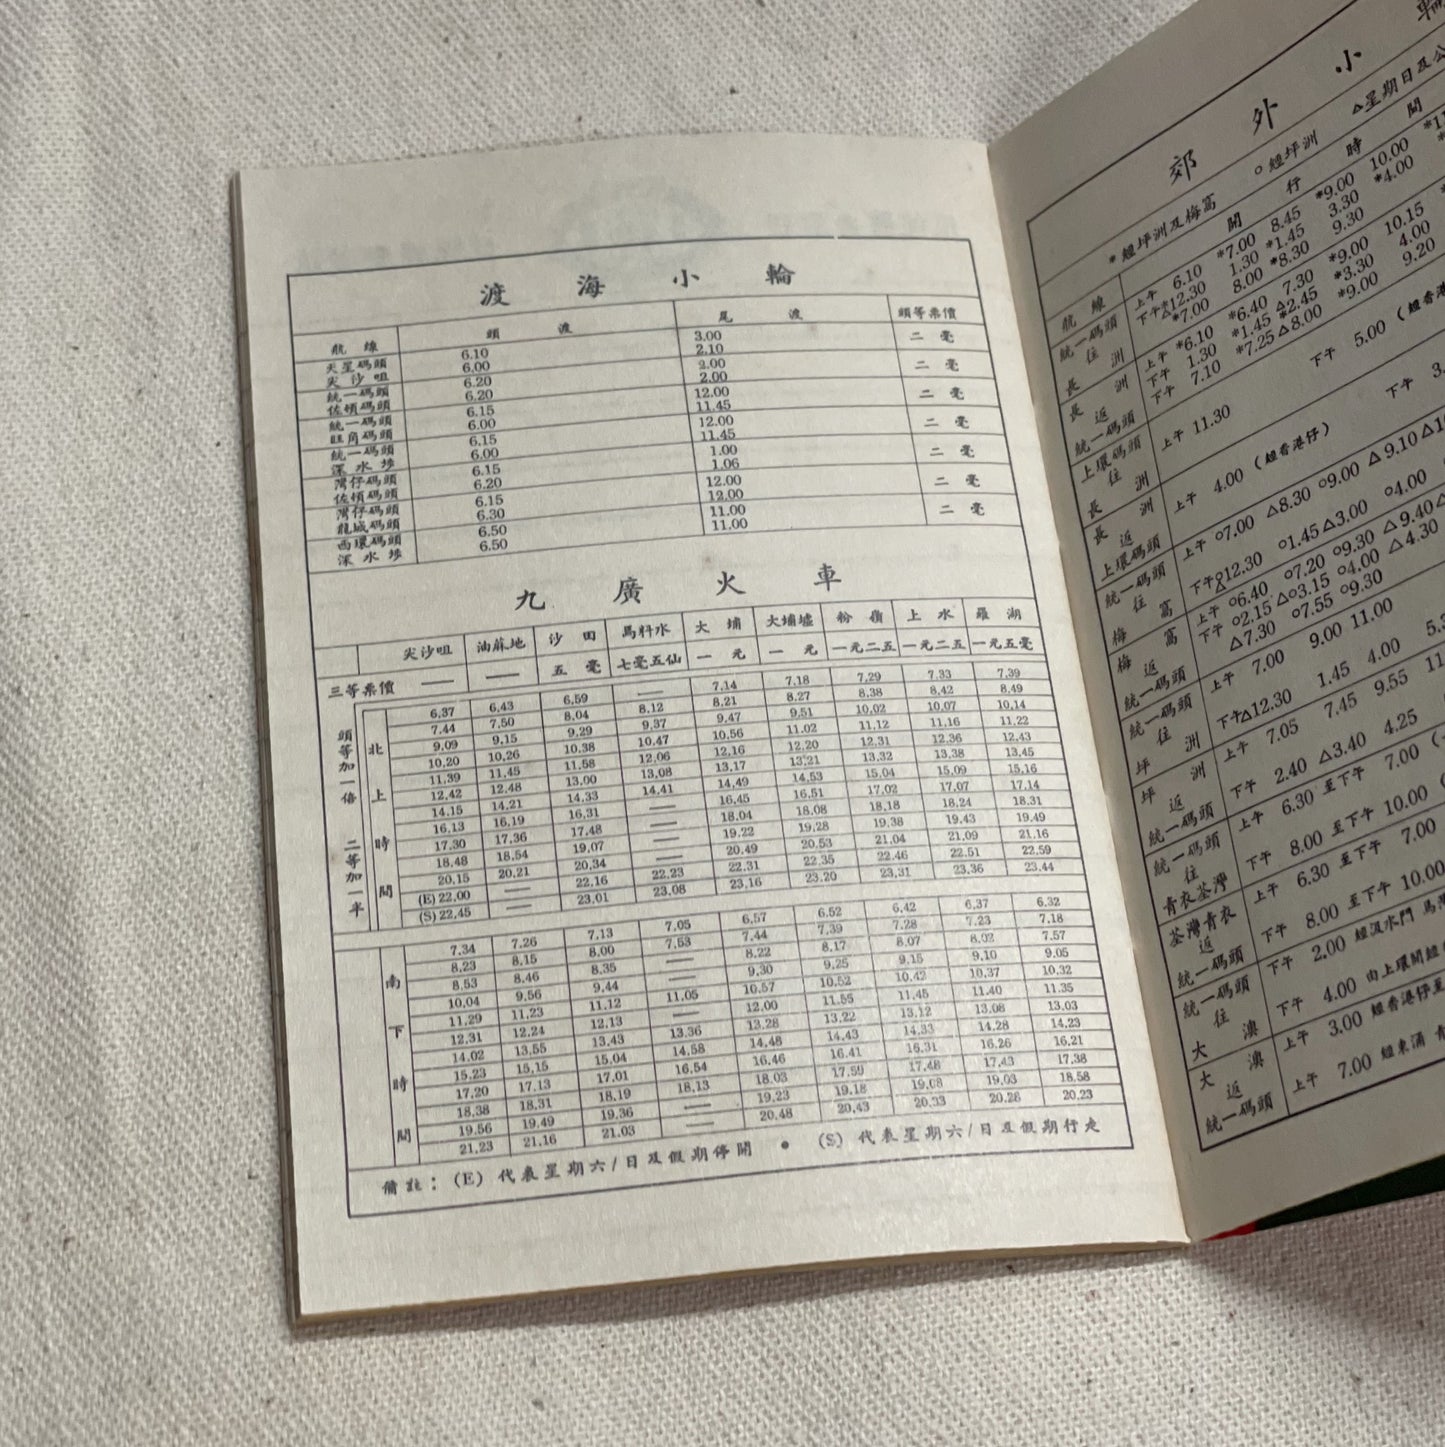 渡 海 小 輪
航 線 頭 渡 尾 渡 頭等票價
天星碼頭 6.10 3.00 二 毫
尖 沙 咀 6.00 2.10
統一碼頭 6.20 2.00 二 毫
佐頓碼頭 6.20 2.00
統一碼頭 6.15 12.00 二 毫
旺角碼頭 6.00 11.45
統一碼頭 6.15 12.00 二 毫
深 水 埗 6.00 11.45
灣仔碼頭 6.15 1.00 二 毫
佐頓碼頭 6.20 1.06
灣仔碼頭 6.15 12.00 二 毫
龍城碼頭 6.30 12.00
西環碼頭 6.50 11.00 二 毫
深 水 埗 6.50 11.00
九 廣 火 車
尖沙咀 油蔴地 沙 田 馬料水 大 埔 大埔墟 粉 嶺 上 水 羅 湖
三等票價 — — 五 毫 七毫五仙 一 元 一 元 一元二五 一元二五 一元五毫
頭等加一倍 二等加一半
北上時間
6.37 6.43 6.59 — 7.14 7.18 7.29 7.33 7.39
7.44 7.50 8.04 8.12 8.21 8.27 8.38 8.42 8.49
9.09 9.15 9.29 9.37 9.47 9.51 10.02 10.07 10.14
10.20 10.26 10.38 10.47 10.56 11.02 11.12 11.16 11.22
11.39 11.45 11.58 12.06 12.16 12.20 12.31 12.36 12.43
12.42 12.48 13.00 13.08 13.17 13.21 13.32 13.38 13.45
14.15 14.21 14.33 14.41 14.49 14.53 15.04 15.09 15.16
16.13 16.19 16.31 — 16.45 16.51 17.02 17.07 17.14
17.30 17.36 17.48 — 18.04 18.08 18.18 18.24 18.31
18.48 18.54 19.07 — 19.22 19.28 19.38 19.43 19.49
20.15 20.21 20.34 — 20.49 20.53 21.04 21.09 21.16
(E) 22.00 — 22.16 22.23 22.31 22.35 22.46 22.51 22.59
(S) 22.45 — 23.01 23.08 23.16 23.20 23.31 23.36 23.44
南下時間
7.34 7.26 7.13 7.05 6.57 6.52 6.42 6.37 6.32
8.23 8.15 8.00 7.53 7.44 7.39 7.28 7.23 7.18
8.53 8.46 8.35 — 8.22 8.17 8.07 8.02 7.57
10.04 9.56 9.44 — 9.30 9.25 9.15 9.10 9.05
11.29 11.23 11.12 11.05 10.57 10.52 10.42 10.37 10.32
12.31 12.24 12.13 — 12.00 11.55 11.45 11.40 11.35
14.02 13.55 13.43 13.36 13.28 13.22 13.12 13.08 13.03
15.23 15.15 15.04 14.58 14.48 14.43 14.33 14.28 14.23
17.20 17.13 17.01 16.54 16.46 16.41 16.31 16.26 16.21
18.38 18.31 18.19 18.13 18.03 17.59 17.48 17.43 17.38
19.56 19.49 19.36 — 19.23 19.18 19.08 19.03 18.58
21.23 21.16 21.03 — 20.48 20.43 20.33 20.28 20.23
備註：(E) 代表星期六/日及假期停開 ● (S) 代表星期六/日及假期行走
郊 外 小 輪
*經坪洲及梅窩 ○經坪洲 △星期日及公
航 線 開 行 時 間
統一碼頭 往 長 洲
上午 6.10 *7.00 8.45 *9.00 10.00
下午*△12.30 1.30 *1.45 3.30 *4.00
*7.00 8.00 *8.30 9.30
長 洲 返 統一碼頭
上午 *6.10 *6.40 7.30 *9.00 10.15
下午 1.30 *1.45 △2.45 *3.30 4.00
下午 7.10 *7.25 △8.00 *9.00 9.20
上環碼頭 往 長 洲
上午 11.30 下午 5.00 (經香港
長 洲 返 上環碼頭
上午 4.00 (經香港仔) 下午 3.
統一碼頭 往 梅 窩
上午 ○7.00 △8.30 ○9.00 △9.10
下午 12.30 ○1.45 △3.00 ○4.00
梅 窩 返 統一碼頭
上午 ○6.40 ○7.20 ○9.30 △9.40
下午 ○2.15 △○3.15 ○4.00 △4.30
△7.30 ○7.55 ○9.30
統一碼頭 往 坪 洲
上午 7.00 9.00 11.00
下午△12.30 1.45 4.00
坪 洲 返 統一碼頭
上午 7.05 7.45 9.55
下午 2.40 △3.40 4.25
統一碼頭 往 青衣荃灣
上午 6.30 至下午 7.00
下午 8.00 至下午 10.00
荃灣青衣 返 統一碼頭
上午 6.30 至下午 7.00
下午 8.00 至下午 10.00
統一碼頭 往 大 澳
下午 2.00 經汲水門
下午 4.00 由上環開經
大 澳 返 統一碼頭
上午 3.00 經香港仔至
上午 7.00 經東涌